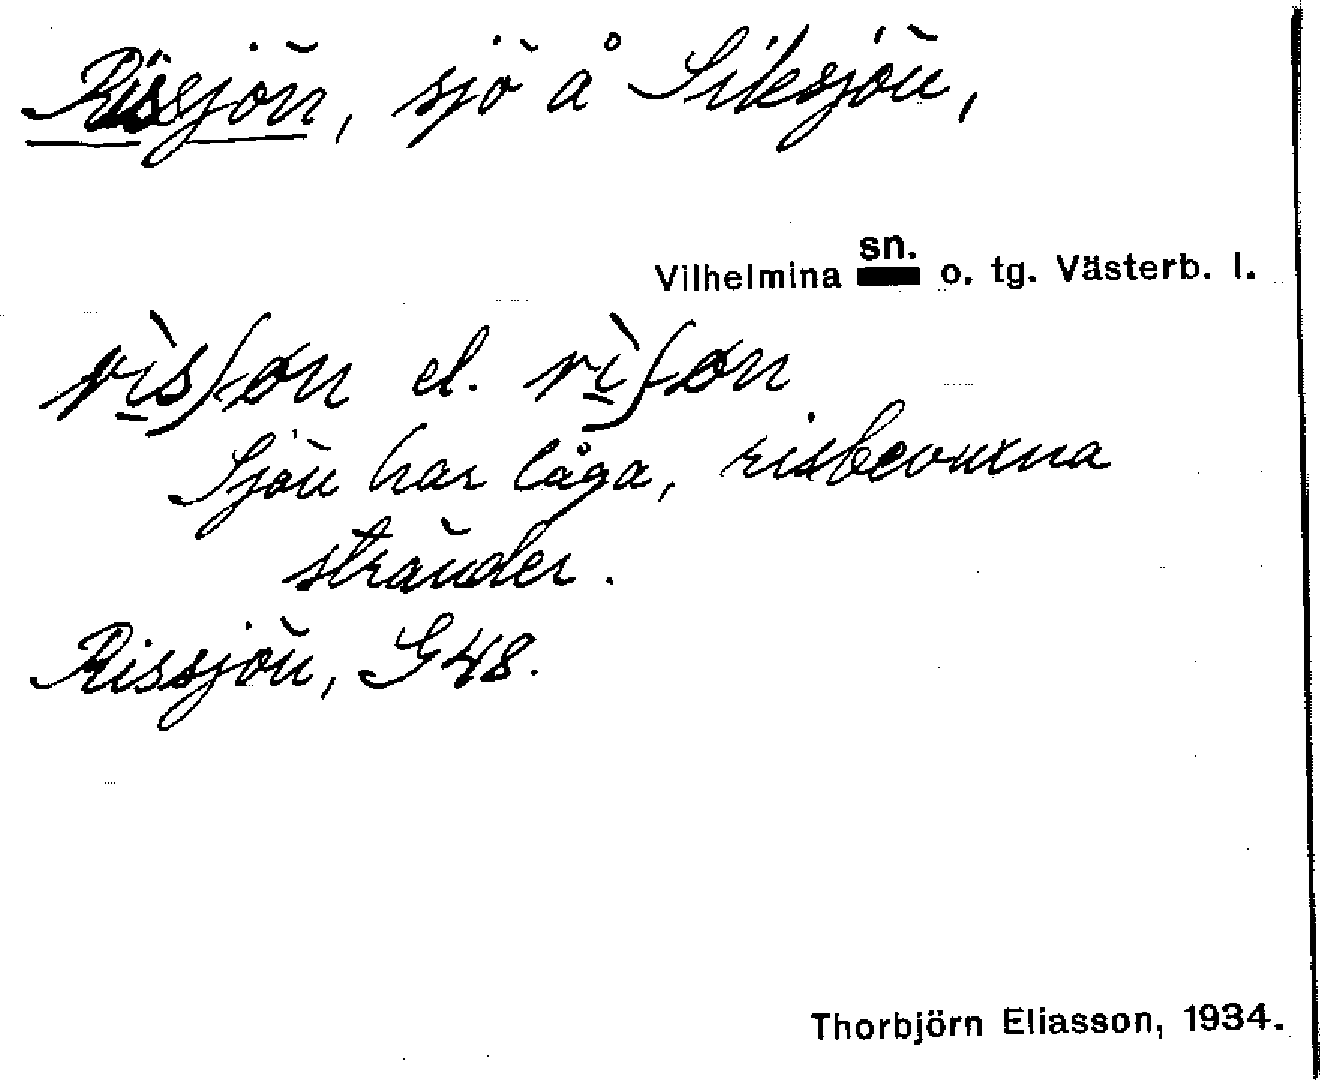 Rissjön, sjö å Siksjön,
Vilhelmina sn. o. tg. Västerb. l.
rìsʃøn el. rìʃøn
Sjön har låga, risbevuxna
stränder.
Rissjön, G48.
Thorbjörn Eliasson, 1934.